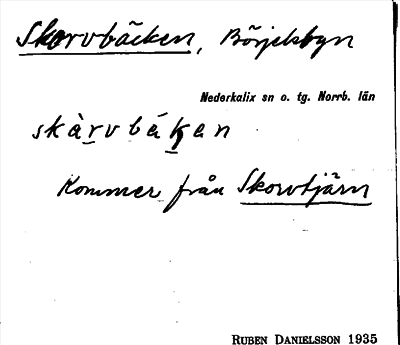 Skorvbäcken, Börjelsbyn
Nederkalix sn o. tg. Norrb. län
skàrvbákan
Kommer från Skorvtjärn
RUBEN DANIELSSON 1935